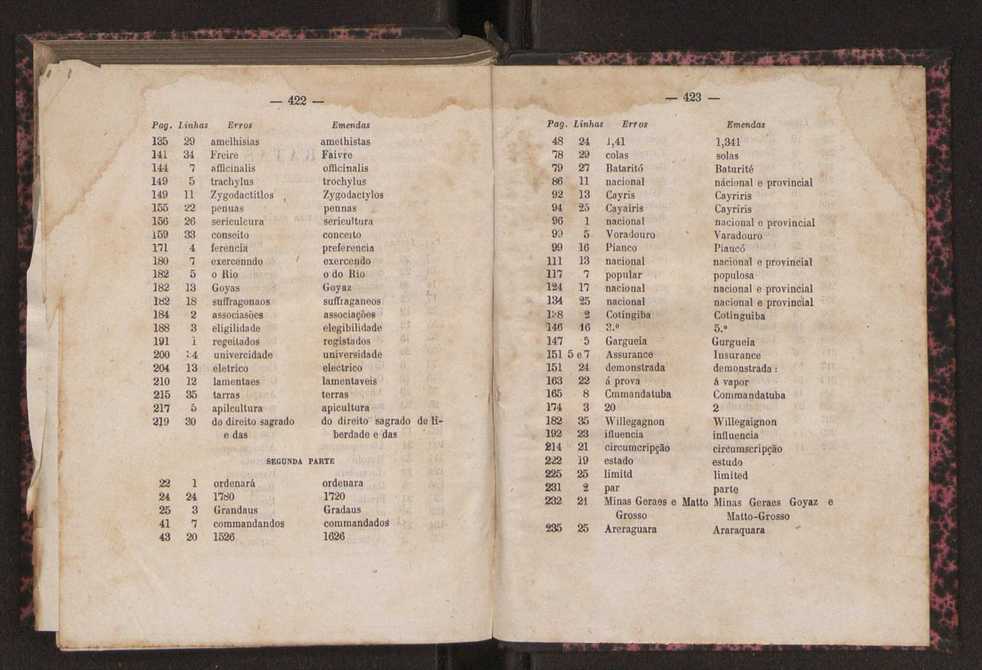 — 422 —
Pag. Linhas Erros Emendas
135 29 amelhisias amethistas
141 34 Freire Faivre
144 7 afficinalis officinalis
149 5 trachylus trochylus
149 11 Zygodactitlos Zygodactylos
155 22 penuas pennas
156 26 sericulcura sericultura
159 33 conseito conceito
171 4 ferencia preferencia
180 7 exercenndo exercendo
182 5 o Rio o do Rio
182 13 Goyas Goyaz
182 18 suffragonaos suffraganeos
184 2 associasões associações
188 3 eligilidade elegibilidade
191 1 regeitados registados
200 14 univercidade universidade
204 13 eletrico electrico
210 12 lamentaes lamentaveis
215 35 tarras terras
217 5 apilcultura apicultura
219 30 do direito sagrado do direito sagrado de li-
e das berdade e das
SEGUNDA PARTE
22 1 ordenará ordenara
24 24 1780 1720
25 3 Grandaus Gradaus
41 7 commandandos commandados
43 20 1526 1626
— 423 —
Pag. Linhas Erros Emendas
48 24 1,41 1,341
78 29 colas solas
79 27 Bataritó Baturité
86 11 nacional nacional e provincial
92 13 Cayris Cayriris
94 25 Cayairis Cayriris
96 1 nacional nacional e provincial
99 5 Voradouro Varadouro
99 16 Pianco Piancó
111 13 nacional nacional e provincial
117 7 popular populosa
124 17 nacional nacional e provincial
134 25 nacional nacional e provincial
138 2 Cotingiba Cotinguiba
146 16 3.º 5.º
147 5 Gargueia Gurgueia
151 5 e 7 Assurance Insurance
151 24 demonstrada demonstrada:
163 22 á prova á vapor
165 8 Cmmandatuba Commandatuba
174 3 20 2
182 35 Willegagnon Willegaignon
192 23 ifluencia influencia
214 21 circumcripção circumscripção
222 19 estado estudo
225 25 limitd limited
231 2 par parte
232 21 Minas Geraes e Matto Minas Geraes Goyaz e
Grosso Matto-Grosso
235 25 Areraguara Araraquara